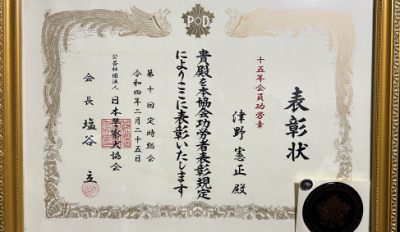 P.D
表彰状
十五年会員功労章
津野憲正殿
貴殿を本協会功労者表彰規定
によりここに表彰いたします
第十回定時総会
令和四年二月二十五日
公益社団法人
日本警察犬協会
会長 塩谷 立